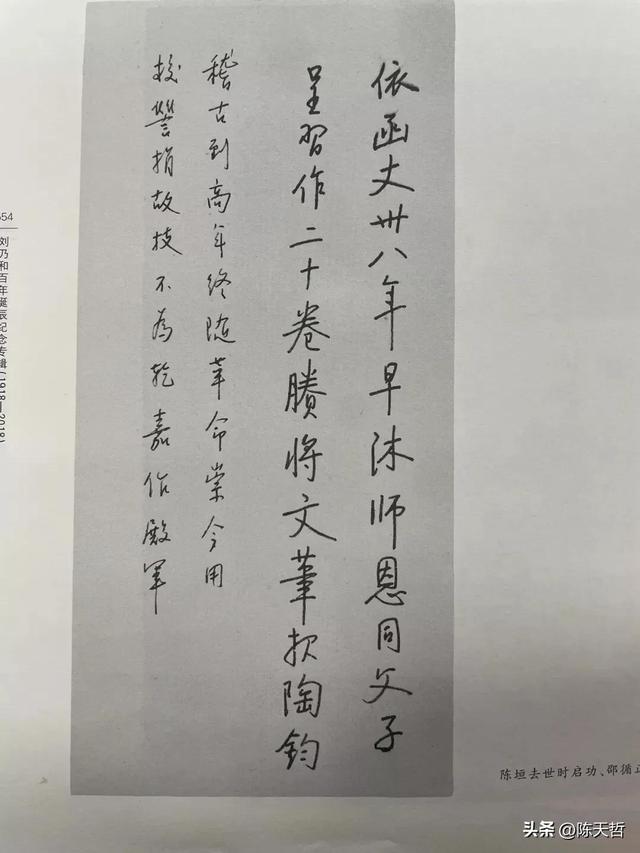 依函丈卅八年早沐师恩同父子
呈習作二十卷賸將文筆报陶鈞
稽古到高年终随革命崇今用
校讐捐故技不為乾嘉作殿军
554
刘乃和百年诞辰纪念专辑(1918—2018)
陈垣去世时启功、邵循正
头条 @陈天哲